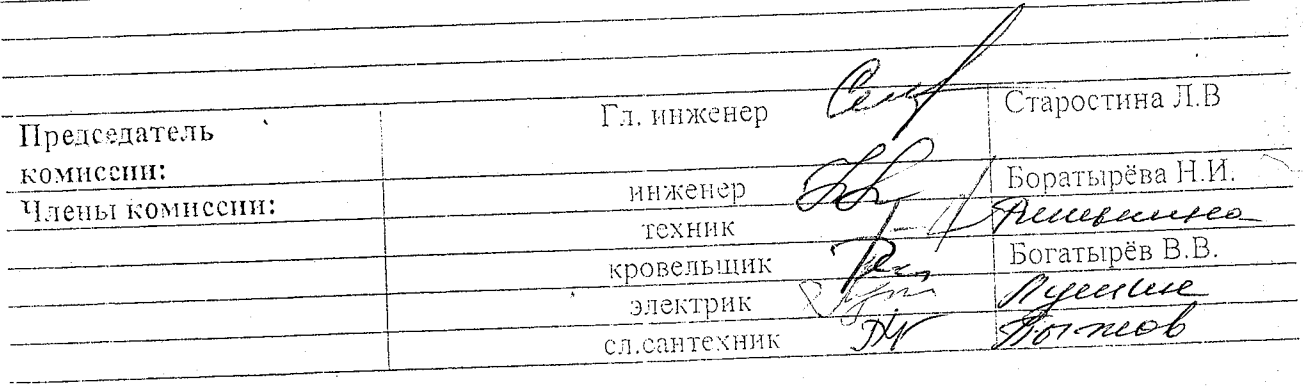 Председатель комиссии: Гл. инженер Старостина Л.В
Члены комиссии: инженер Боратырёва Н.И.
техник
кровельщик Богатырёв В.В.
электрик
сл.сантехник Пыжов